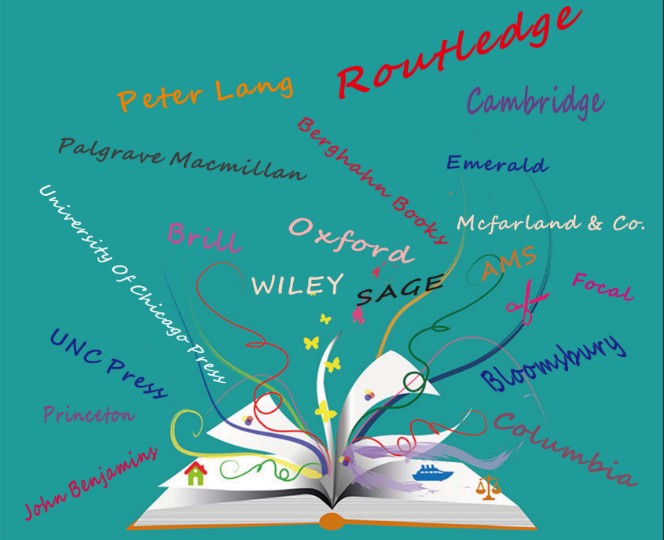 Routledge
Peter Lang
Cambridge
Berghahn Books
Palgrave Macmillan
Emerald
University Of Chicago Press
Brill
Oxford
Mcfarland & Co.
WILEY
SAGE
AMS
Focal
UNC Press
Bloomsbury
Princeton
Columbia
John Benjamins